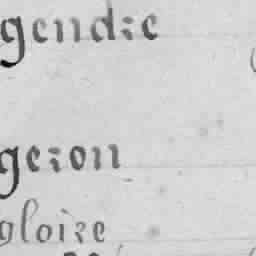 gendre
geron
gloire